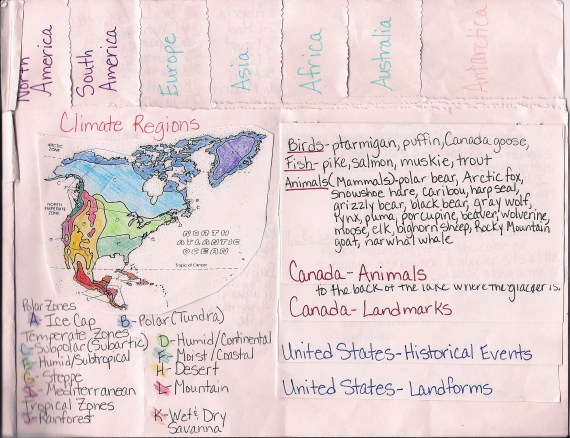 North America
South America
Europe
Asia
Africa
Australia
Antarctica
Climate Regions
ARCTIC ZONE
NORTH TEMPERATE ZONE
NORTH ATLANTIC OCEAN
Tropic of Cancer
Polar Zones
A- Ice Cap B- Polar (Tundra)
Temperate Zones
Subpolar (Subartic) D- Humid/Continental
Humid/Subtropical F- Moist/Coastal
Steppe H- Desert
Mediterranean Mountain
Tropical Zones
J- Rainforest K- Wet & Dry Savanna
Birds- ptarmigan, puffin, Canada goose,
Fish- pike, salmon, muskie, trout
Animals (Mammals)- polar bear, Arctic fox,
snowshoe hare, caribou, harp seal,
grizzly bear, black bear, gray wolf,
lynx, puma, porcupine, beaver, wolverine,
moose, elk, bighorn sheep, Rocky Mountain
goat, narwhal whale
Canada- Animals
to the back of the lake where the glacier is.
Canada- Landmarks
United States- Historical Events
United States- Landforms